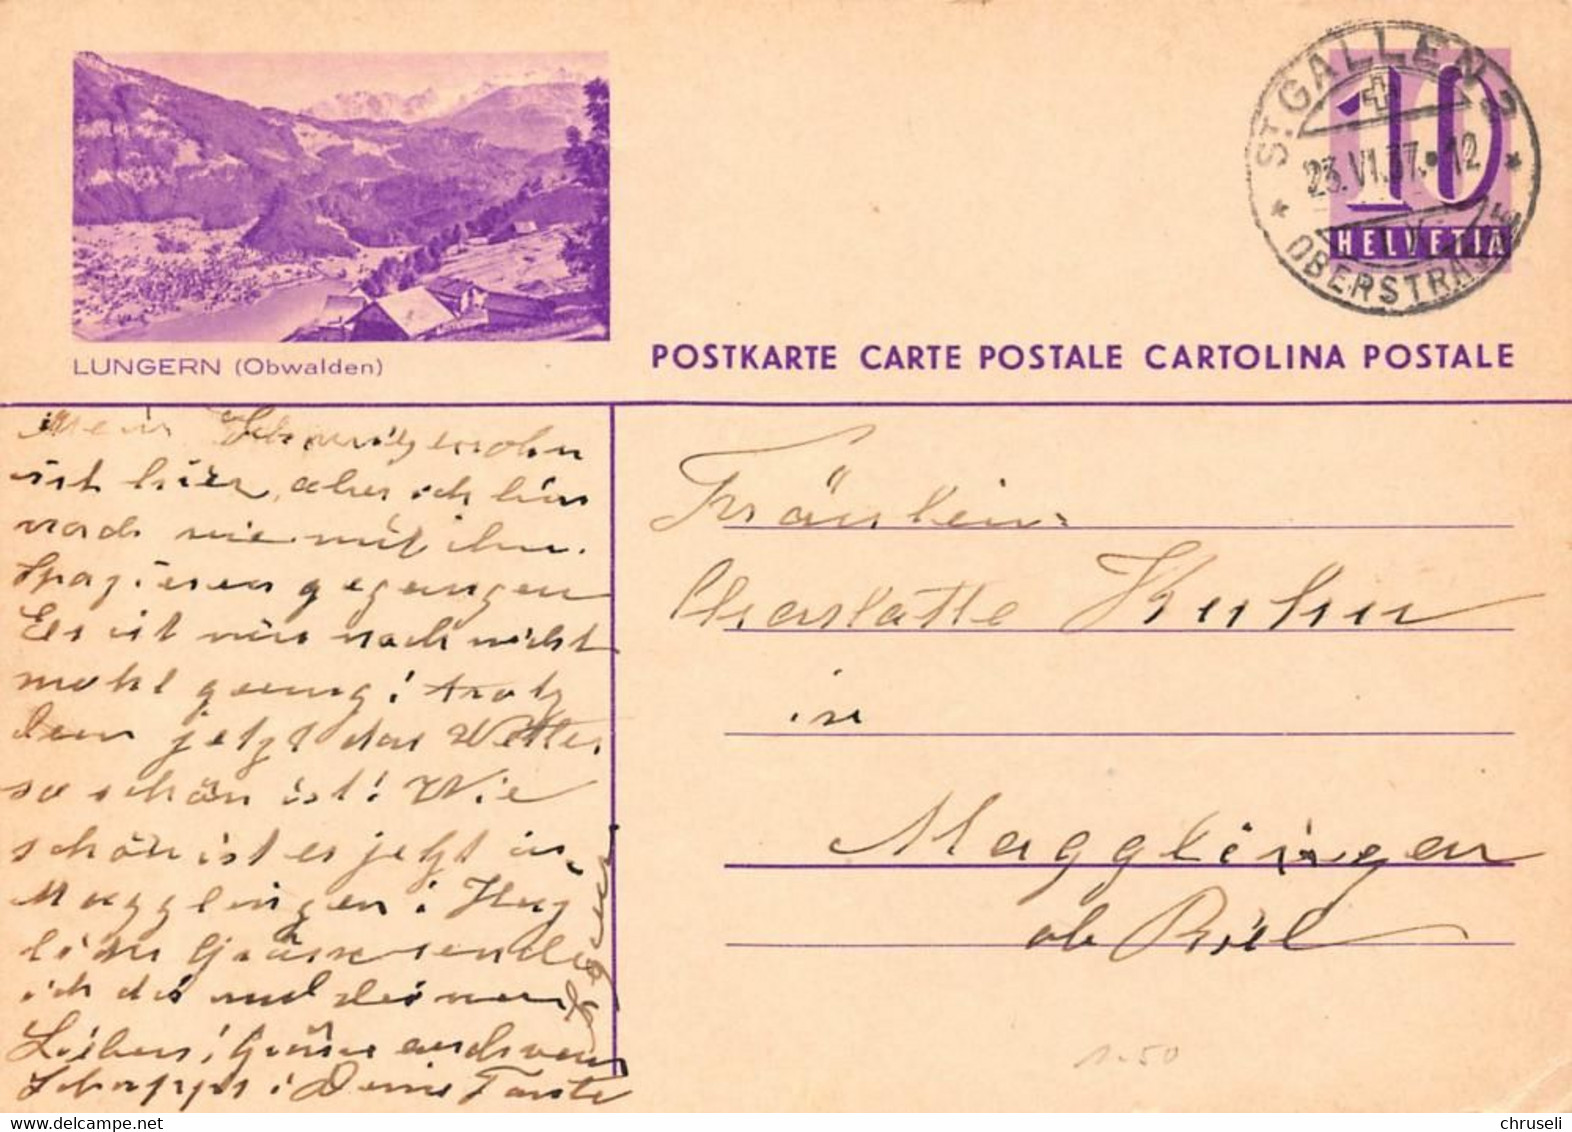 ST. GALLEN 3
23.VI.37.-12
OBERSTRASSE
10
HELVETIA
LUNGERN (Obwalden)
POSTKARTE CARTE POSTALE CARTOLINA POSTALE
Mein Schwigersohn
ist hier, aber ich bin
noch nie mit ihm
Spazieren gegangen
Es ist mir noch nicht
wohl genug! trotz
dem jetzt das Wetter
so schön ist! Wie
schön ist es jetzt in
Magglingen!
liche Grüsse sende
ich dir und deinen
Lieben! Grüsse auch von
Deine Tante
Fräulein
Charlotte Kuhn
in
Magglingen
ob Biel
1.50
chruseli